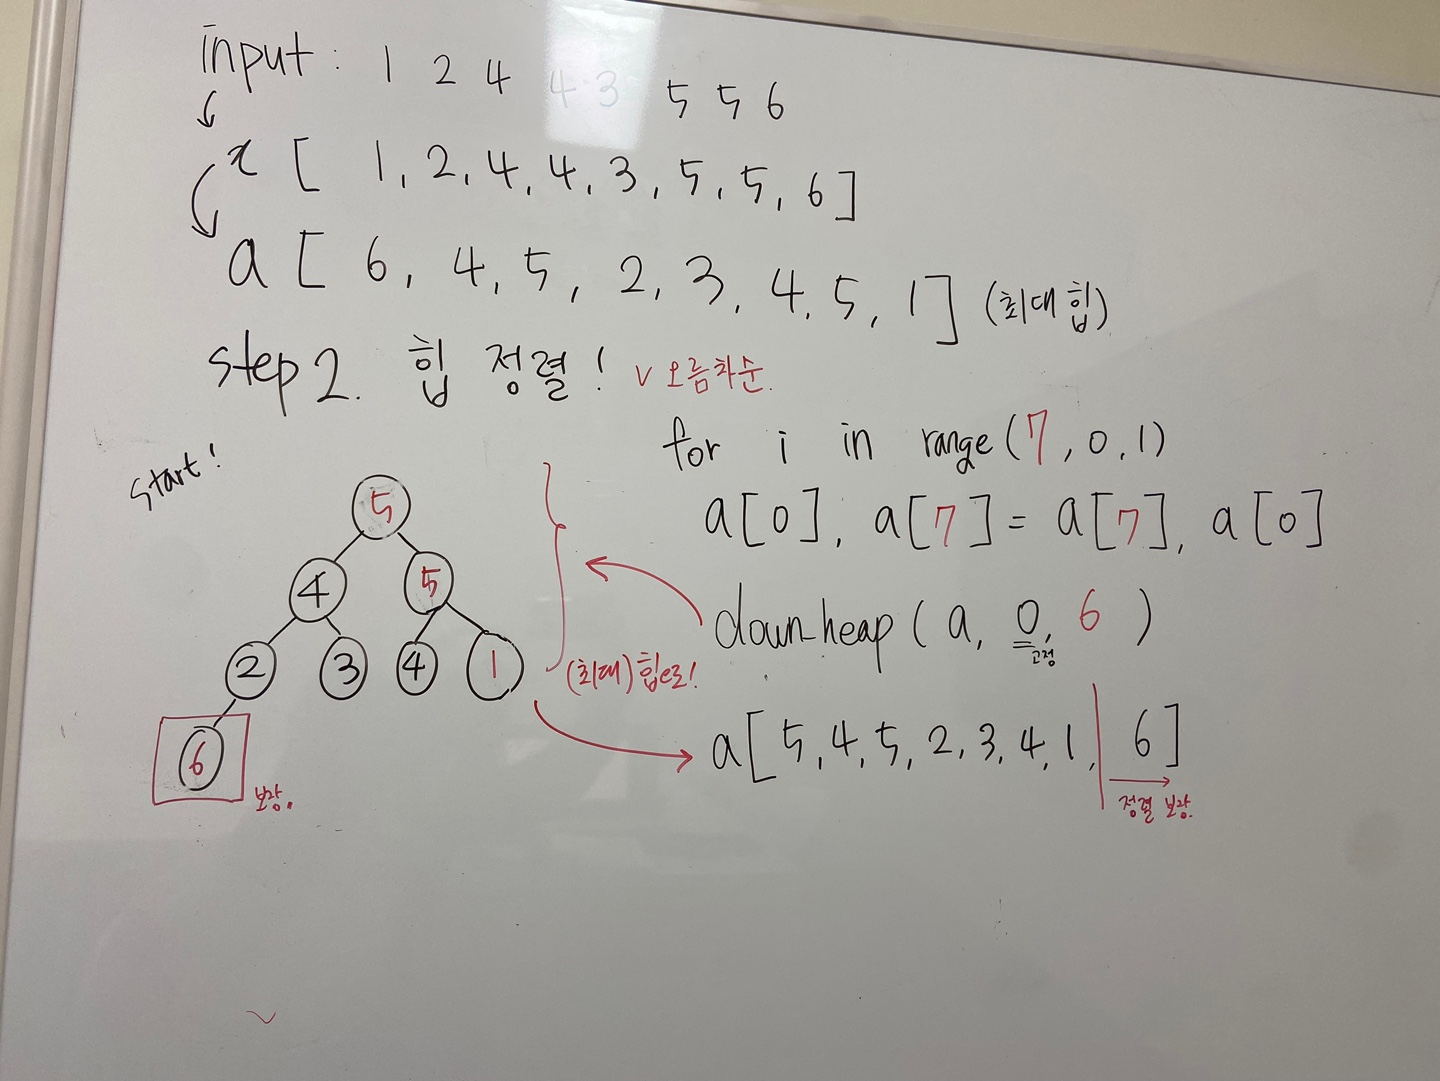 input : 1 2 4 4 3 5 5 6
x [ 1, 2, 4, 4, 3, 5, 5, 6 ]
a [ 6, 4, 5, 2, 3, 4, 5, 1 ] (최대 힙)
step 2. 힙 정렬! v 오름차순.
start!
for i in range(7, 0, 1)
a[0], a[7] = a[7], a[0]
down_heap ( a, 0, 6 )
고정
5
4 5
2 3 4 1
6
보장.
(최대) 힙으로!
a[ 5, 4, 5, 2, 3, 4, 1, | 6 ]
정렬 보장.